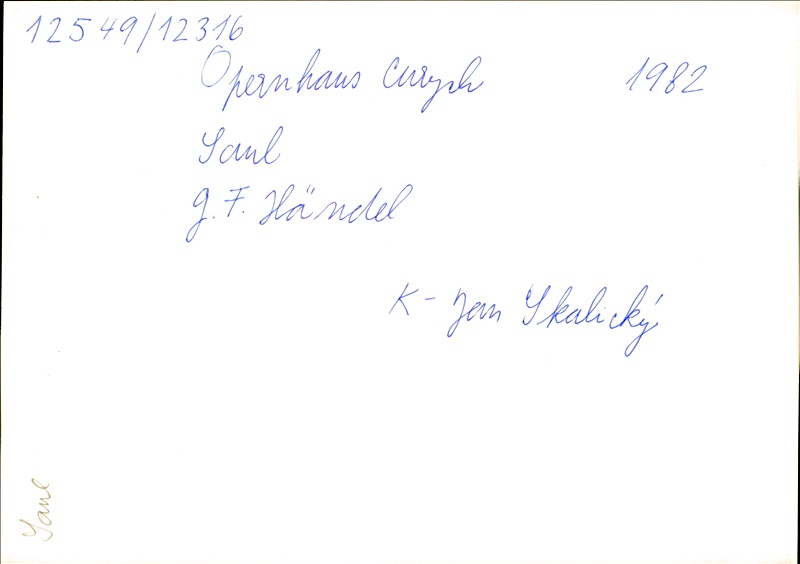 12549/12316
Opernhaus Curych 1982
Saul
G. F. Händel
K - Jan Skalický
Saul